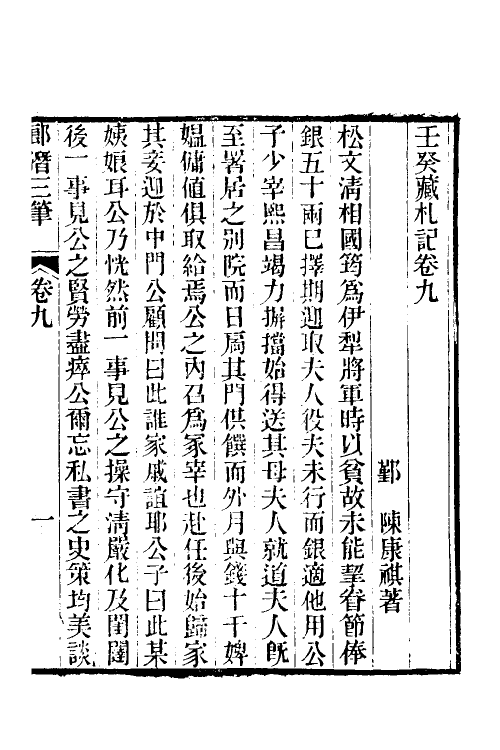 壬癸藏札記卷九
鄞 陳康祺著
松文清相國筠爲伊犁將軍時以貧故未能挈眷節俸
銀五十兩已擇期迎取夫人役夫未行而銀適他用公
子少宰熙昌竭力摒擋始得送其母夫人就道夫人旣
至署居之別院而日扃其門供饌而外月與錢十千婢
媼傭値俱取給焉公之內召爲冢宰也赴任後始歸家
其妾迎於中門公顧問曰此誰家戚誼耶公子曰此某
姨娘耳公乃恍然前一事見公之操守淸嚴化及閨闥
後一事見公之賢勞盡瘁公爾忘私書之史策均美談
郎潛三筆
卷九
一